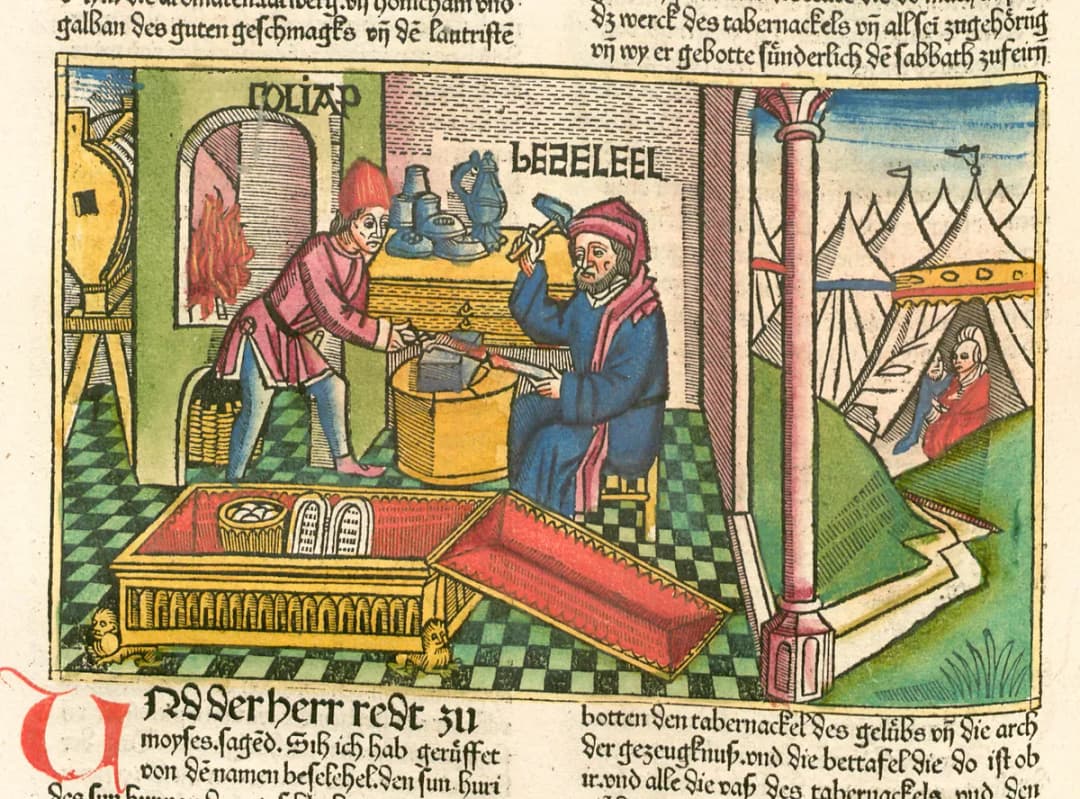 galban des guten geschmagks vñ dẽ lautristẽ
dz werck des tabernackels vñ all sei zugehörũg
vñ wy er gebotte sünderlich dẽ sabbath zufeirñ
OLIAP
bEZELEEL
UNd der herr redt zu
moyses.sagẽd. Sih ich hab gerüffet
von dẽ namen beselehel.den sun huri
botten den tabernackel des gelübs vñ die arch
der gezeugknuß.vnd die bettafel die do ist ob
ir.vnd alle die vaß des tabernackels vnd den